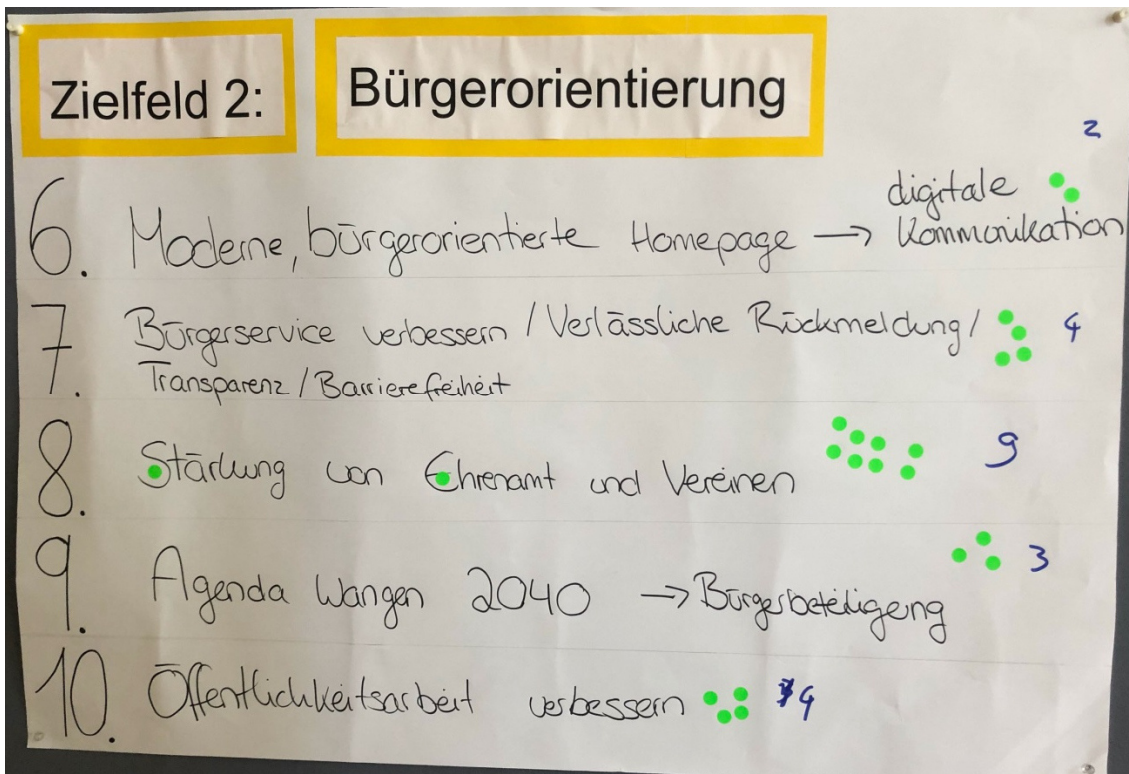 Zielfeld 2: Bürgerorientierung
2
digitale
6. Moderne, bürgerorientierte Homepage → Kommunikation
7. Bürgerservice verbessern / Verlässliche Rückmeldung / 4
Transparenz / Barrierefreiheit
8. Stärkung von Ehrenamt und Vereinen 9
9. Agenda Wangen 2040 → Bürgerbeteiligung 3
10. Öffentlichkeitsarbeit verbessern 4